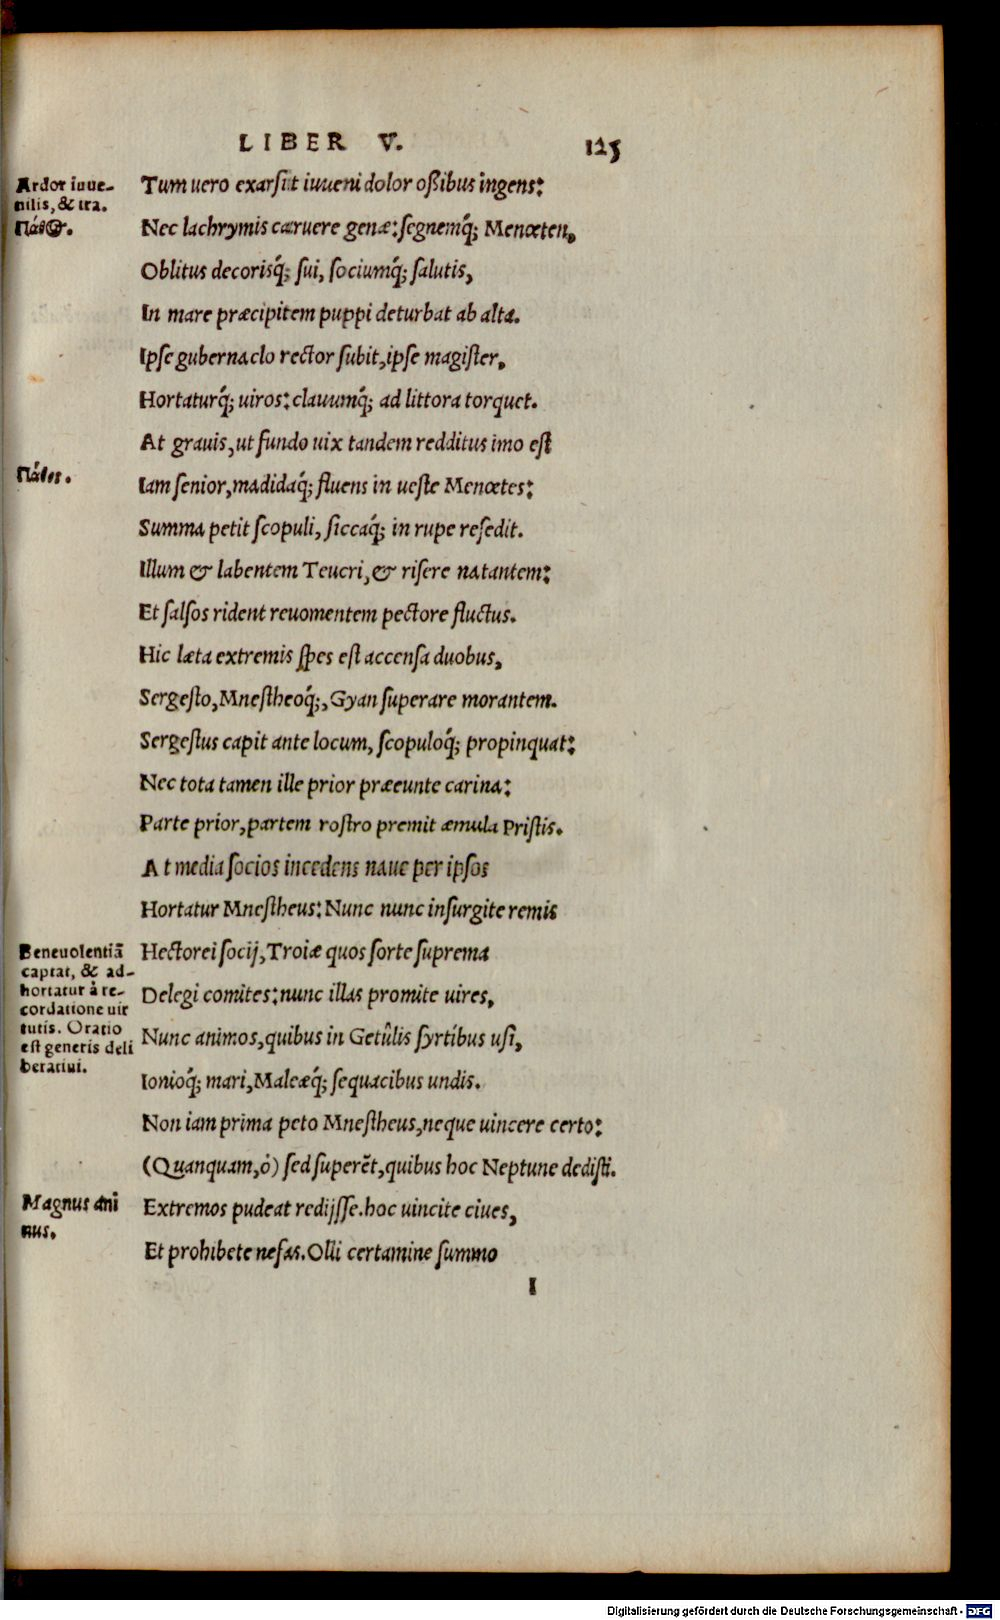 LIBER V. 125
Ardor iuue-
nilis, & ira.
Πάθος.
Tum uero exarsit iuueni dolor oßibus ingens:
Nec lachrymis caruere genæ: segnemq́; Menœten,
Oblitus decorisq́; sui, sociumq́; salutis,
In mare præcipitem puppi deturbat ab alta.
Ipse gubernaclo rector subit, ipse magister,
Hortaturq́; uiros: clauumq́; ad littora torquet.
At grauis, ut fundo uix tandem redditus imo est
Πάθος.
Iam senior, madidaq́; fluens in ueste Menœtes:
Summa petit scopuli, siccaq́; in rupe resedit.
Illum & labentem Teucri, & risere natantem:
Et salsos rident reuomentem pectore fluctus.
Hic læta extremis spes est accensa duobus,
Sergesto, Mnestheoq́;, Gyan superare morantem.
Sergestus capit ante locum, scopuloq́; propinquat:
Nec tota tamen ille prior præeunte carina:
Parte prior, partem rostro premit æmula Pristis.
At media socios incedens naue per ipsos
Hortatur Mnestheus: Nunc nunc insurgite remis
Beneuolentiã
captat, & ad-
hortatur à re-
cordatione uir
tutis. Oratio
est generis deli
beratiui.
Hectorei socij, Troiæ quos sorte suprema
Delegi comites: nunc illas promite uires,
Nunc animos, quibus in Getûlis syrtibus usi,
Ionioq́; mari, Maleæq́; sequacibus undis.
Non iam prima peto Mnestheus, neque uincere certo:
(Quanquam, ô) sed superẽt, quibus hoc Neptune dedisti.
Magnus ani
mus.
Extremos pudeat redijsse. hoc uincite ciues,
Et prohibete nefas. Olli certamine summo
I
Digitalisierung gefördert durch die Deutsche Forschungsgemeinschaft - DFG